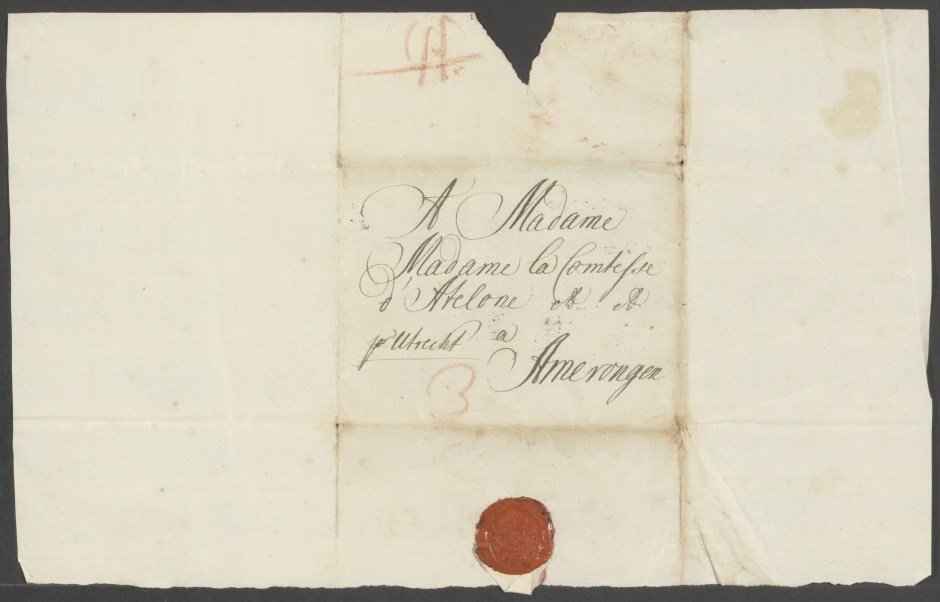 A Madame
Madame la Comtesse
d'Atelone &. &.
pr Utrecht a
Amerongen
3